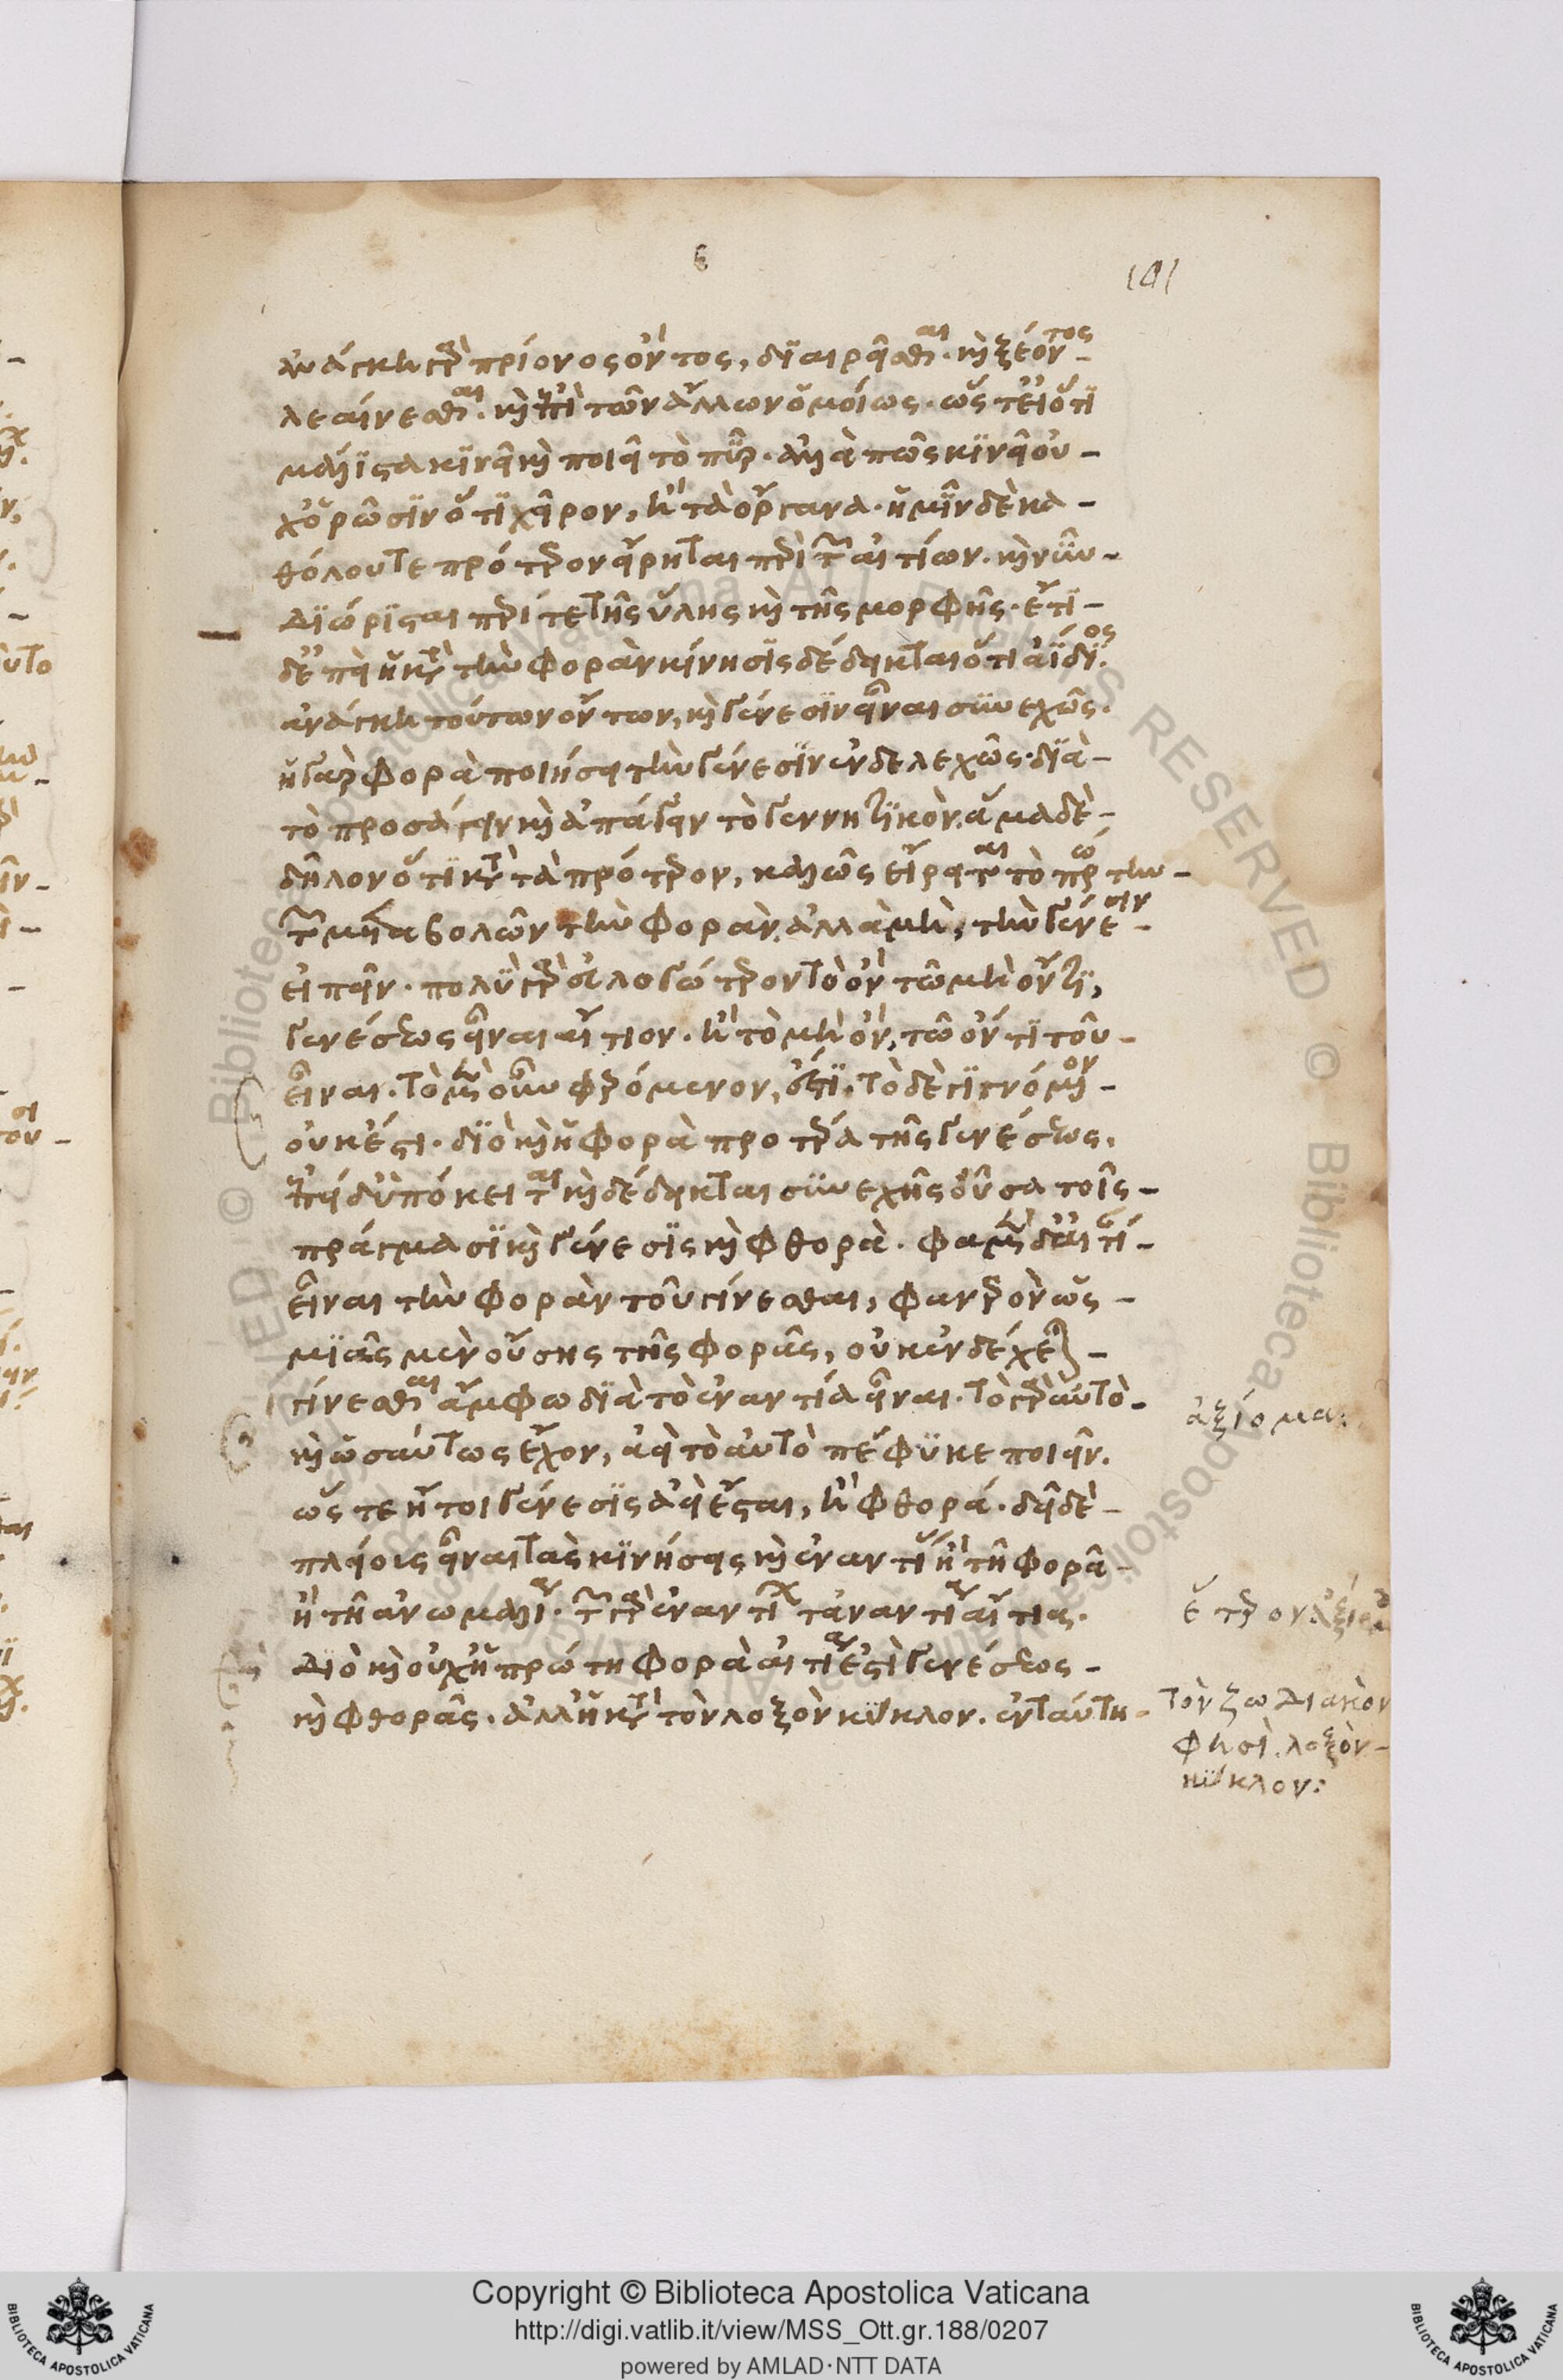 β
ἀνάγκη γὰρ πρίονος ὄντος, διαιρεῖσθαι. καὶ ξέοντος
λεαίνεσθαι. καὶ ἐπὶ τῶν ἄλλων ὁμοίως. ὥστ' εἰ ὅτι
μάλιστα κινεῖ καὶ ποιεῖ τὸ πῦρ. ἀλλὰ πῶς κινεῖ οὐ
χ' ὁρῶσιν ὅτι χεῖρον, ἢ τὰ ὄργανα. ἡμῖν δὲ κα
θόλου τε πρότερον εἴρηται περὶ τῶν αἰτίων. καὶ νῦν
διώρισται περί τε τῆς ὕλης καὶ τῆς μορφῆς. ἔτι
δ' ἐπεὶ ἡ κατὰ τὴν φορὰν κίνησις δέδεικται ὅτι ἀΐδιος
ἀνάγκη τούτων ὄντων, καὶ γένεσιν εἶναι συνεχῶς.
ἡ γὰρ φορὰ ποιήσει τὴν γένεσιν ἐνδελεχῶς. διὰ
τὸ προσάγειν καὶ ἀπάγειν τὸ γεννητικόν. ἅμα δὲ
δῆλον ὅτι κατὰ τὰ πρότερον, καλῶς εἴρηται τὸ πρώτην
τῶν μεταβολῶν τὴν φορὰν, ἀλλὰ μὴ, τὴν γένεσιν
εἰπεῖν. πολὺ γὰρ εὐλογώτερον τὸ ὂν τῷ μὴ ὄντι,
γενέσεως εἶναι αἴτιον. ἢ τὸ μὴ ὂν, τῷ ὄντι τοῦ
εἶναι. τὸ μὲν οὖν φερόμενον, ἐστί. τὸ δὲ γιγνόμενον
οὐκ ἐστι. διὸ καὶ ἡ φορὰ προτέρα τῆς γενέσεως.
ἐπεὶ δ' ὑπόκειται καὶ δέδεικται συνεχὴς οὖσα τοῖς
πράγμασι καὶ γένεσις καὶ φθορὰ. φαμὲν δ' αἰτίαν
εἶναι τὴν φορὰν τοῦ γίνεσθαι, φανερὸν ὡς
μιᾶς μὲν οὔσης τῆς φορᾶς, οὐκ ἐνδέχεται
γίνεσθαι ἄμφω διὰ τὸ ἐναντία εἶναι. τὸ γὰρ αὐτὸ
καὶ ὡσαύτως ἔχον, ἀεὶ τὸ αὐτὸ πέφυκε ποιεῖν.
ὥστε ἤτοι γένεσις ἀεὶ ἔσται, ἢ φθορά. δεῖ δὲ
πλείους εἶναι τὰς κινήσεις καὶ ἐναντίας ἢ τῇ φορᾷ
ἢ τῇ ἀνωμαλίᾳ. τῶν γὰρ ἐναντίων τἀναντία αἴτια.
διὸ καὶ οὐχ ἡ πρώτη φορὰ αἰτία ἐστὶ γενέσεως
καὶ φθορᾶς. ἀλλ' ἡ κατὰ τὸν λοξὸν κύκλον. ἐν ταύτῃ
ἀξίομα:
ἕτερον ἀξίομα
τὸν ζωδιακὸν
φησὶ. λοξὸν
κύκλον:
Copyright © Biblioteca Apostolica Vaticana
http://digi.vatlib.it/view/MSS_Ott.gr.188/0207
powered by AMLAD·NTT DATA
BIBLIOTECA APOSTOLICA VATICANA
BIBLIOTECA APOSTOLICA VATICANA